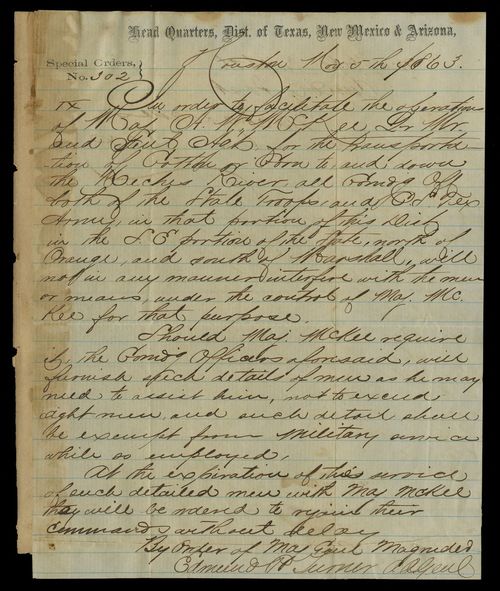 Head Quarters, Dist. of Texas, New Mexico & Arizona,
Houston Nov 5th 1863.
Special Orders,
No. 302
IX In order to facilitate the operations
of Maj. A. W. McKee Qr Mr.
and Gent Agt. for the transporta-
tion of Cotton or Corn to, and down
the Neches River, all Comdg Off
both of the State troops, and C. S.
Army, in that portion of this Dist
in the S. E portion of the State, north of
Orange, and south of Marshall, will
not in any manner interfere with the men
or means under the control of Maj. Mc-
Kee for that purpose
Should Maj. McKee require
it, the Comdg Officers aforesaid, will
furnish such details of men as he may
need to assist him, not to exceed
eight men, and such detail shall
be exempt from Military service
while so employed.
At the expiration of this service
of such detailed men with Maj McKee
they will be ordered to rejoin their
commands without delay
By Order of Maj Genl Magruder
Edmund P Turner AAGenl